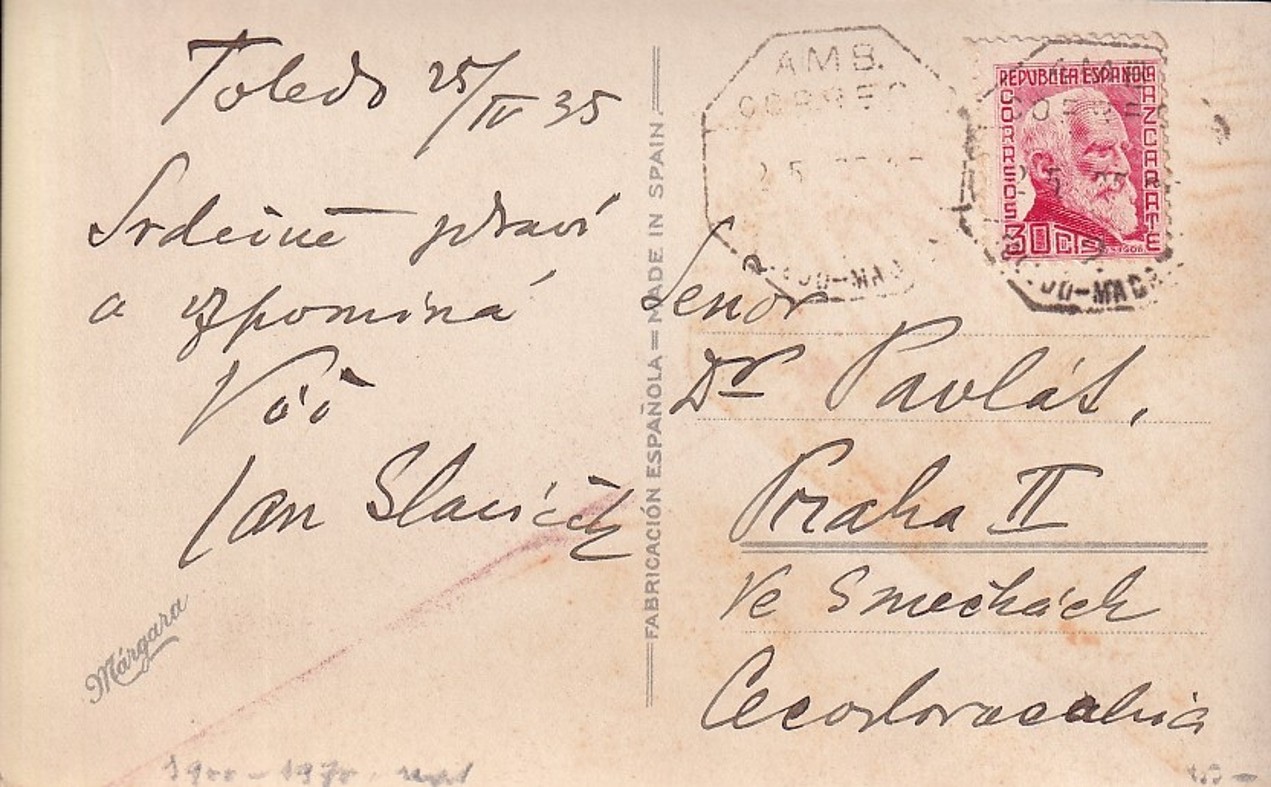 Toledo 25/IV 35
Srdečně zdraví
a vzpomíná
Váš
Jan Slavíček
Márgara
1900 - 1970
FABRICACIÓN ESPAÑOLA — MADE IN SPAIN
AMB.
CORREO
25
AMB
CORRE
25
DO-MAD
REPUBLICA ESPAÑOLA
CORREOS
AZCARATE
30 CTS
Señor
Dr Pavlát,
Praha II
Ve Smečkách
Cecoslovacchia